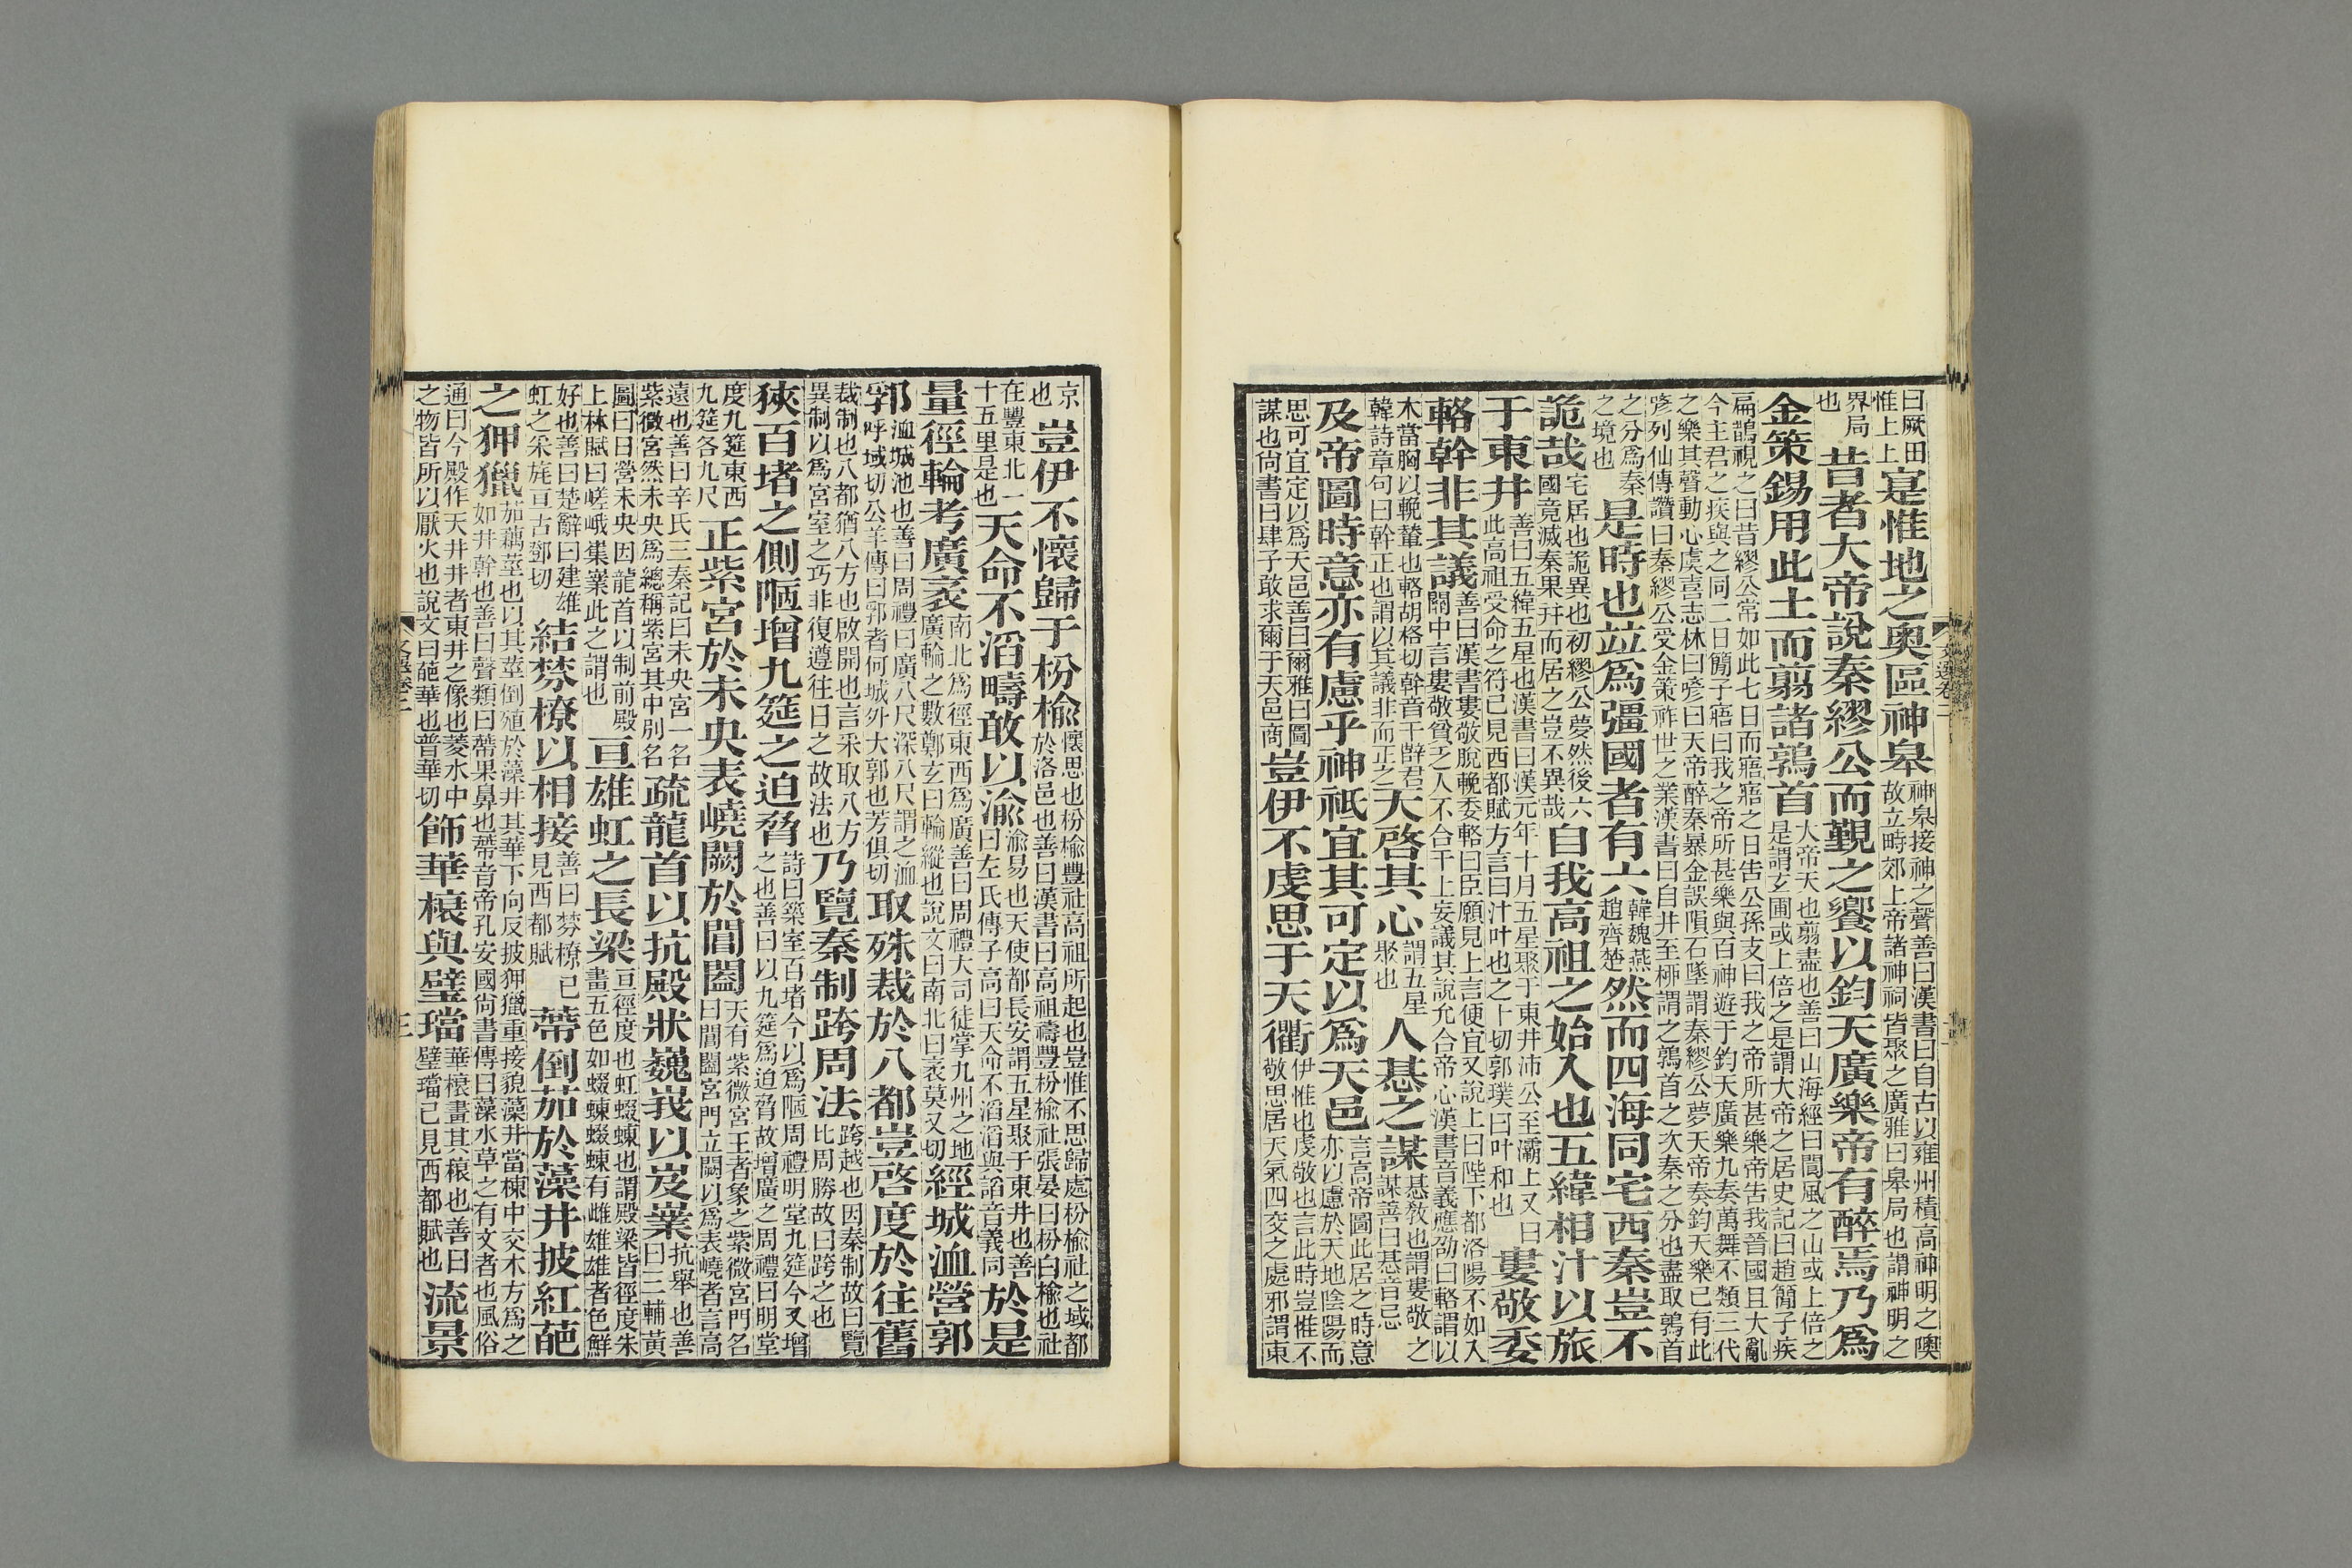 曰厥田惟上上寔惟地之奧區神皋神皋接神之聲善曰漢書曰自古以雍州積高神明之隩故立畤郊上帝諸神祠皆聚之廣雅曰皋局也謂神明之
界局也昔者大帝說秦繆公而覲之饗以鈞天廣樂帝有醉焉乃爲
金策錫用此土而翦諸鶉首大帝天也翦盡也善曰山海經曰閬風之山或上倍之是謂玄圃或上倍之是謂大帝之居史記曰趙簡子疾
扁鵲視之曰昔繆公常如此七日而寤寤之日告公孫支曰我之帝所甚樂帝告我晉國且大亂今主君之疾與之同二日簡子寤曰我之帝所甚樂與百神遊于鈞天廣樂九奏萬舞不類三代
之樂其聲動心虞喜志林曰喭曰天帝醉秦暴金誤隕石墜謂秦繆公夢天帝奏鈞天樂已有此喭列仙傳讚曰秦繆公受金策祚世之業漢書曰自井至桺謂之鶉首之次秦之分也盡取鶉首
之分爲秦之境也是時也竝爲彊國者有六韓魏燕趙齊楚然而四海同宅西秦豈不
詭哉宅居也詭異也初繆公夢然後六國竟滅秦果幷而居之豈不異哉自我高祖之始入也五緯相汁以旅
于東井善曰五緯五星也漢書曰漢元年十月五星聚于東井沛公至灞上又曰此高祖受命之符已見西都賦方言曰汁叶也之十切郭璞曰叶和也婁敬委
輅幹非其議善曰漢書婁敬脫輓委輅曰臣願見上言便宜又說上曰陛下都洛陽不如入關中言婁敬貧乏人不合干上妄議其說允合帝心漢書音義應劭曰輅謂以
木當胸以輓輦也輅胡格切幹音干辥君韓詩章句曰幹正也謂以其議非而正之天啓其心謂五星聚也人惎之謀惎敎也謂婁敬之謀善曰惎音忌
及帝圖時意亦有慮乎神祇宜其可定以爲天邑言高帝圖此居之時意亦以慮於天地陰陽而
思可宜定以爲天邑善曰爾雅曰圖謀也尙書曰肆予敢求爾于天邑商豈伊不虔思于天衢伊惟也虔敬也言此時豈惟不敬思居天氣四交之處邪謂東
文選卷二
京也豈伊不懷歸于枌榆懷思也枌榆豐社高祖所起也豈惟不思歸處枌榆社之域都於洛邑也善曰漢書曰高祖禱豐枌榆社張晏曰枌白榆也社
在豐東北十五里是也天命不滔疇敢以渝渝易也天使都長安謂五星聚于東井也善曰左氏傳子高曰天命不滔滔與謟音義同於是
量徑輪考廣袤南北爲徑東西爲廣善曰周禮大司徒掌九州之地廣輪之數鄭玄曰輪縱也說文曰南北曰袤莫又切經城洫營郭
郛洫城池也善曰周禮曰廣八尺深八尺謂之洫郛呼域切公羊傳曰郛者何城外大郭也芳俱切取殊裁於八都豈啓度於往舊
裁制也八都猶八方也啟開也言采取八方異制以爲宮室之巧非復遵往日之故法也乃覽秦制跨周法跨越也因秦制故曰覽比周勝故曰跨之也
狹百堵之側陋增九筵之迫脅詩曰築室百堵今以爲陋周禮明堂九筵今又增之也善曰以九筵爲迫脅故增廣之周禮曰明堂
度九筵東西九筵各九尺正紫宮於未央表嶢闕於閶闔天有紫微宮王者象之紫微宮門名曰閶闔宮門立闕以爲表嶢者言高
遠也善曰辛氏三秦記曰未央宮一名紫微宮然未央爲總稱紫宮其中別名疏龍首以抗殿狀巍峩以岌嶪抗舉也善曰三輔黃
圖曰營未央因龍首以制前殿上林賦曰嵯峨集嶪此之謂也亘雄虹之長梁亘徑度也虹蝃蝀也謂殿梁皆徑度朱畫五色如蝃蝀蝃蝀有雌雄雄者色鮮
好也善曰楚辭曰建雄虹之采旄亘古鄧切結棼橑以相接善曰棼橑已見西都賦蔕倒茄於藻井披紅葩
之狎獵茄藕莖也以其莖倒殖於藻井其華下向反披狎獵重接貌藻井當棟中交木方爲之如井幹也善曰聲類曰蔕果鼻也蔕音帝孔安國尙書傳曰藻水草之有文者也風俗
通曰今殿作天井井者東井之像也菱水中之物皆所以厭火也說文曰葩華也普華切飾華榱與璧璫華榱畫其榱也善曰璧璫已見西都賦也流景
文選卷二 三